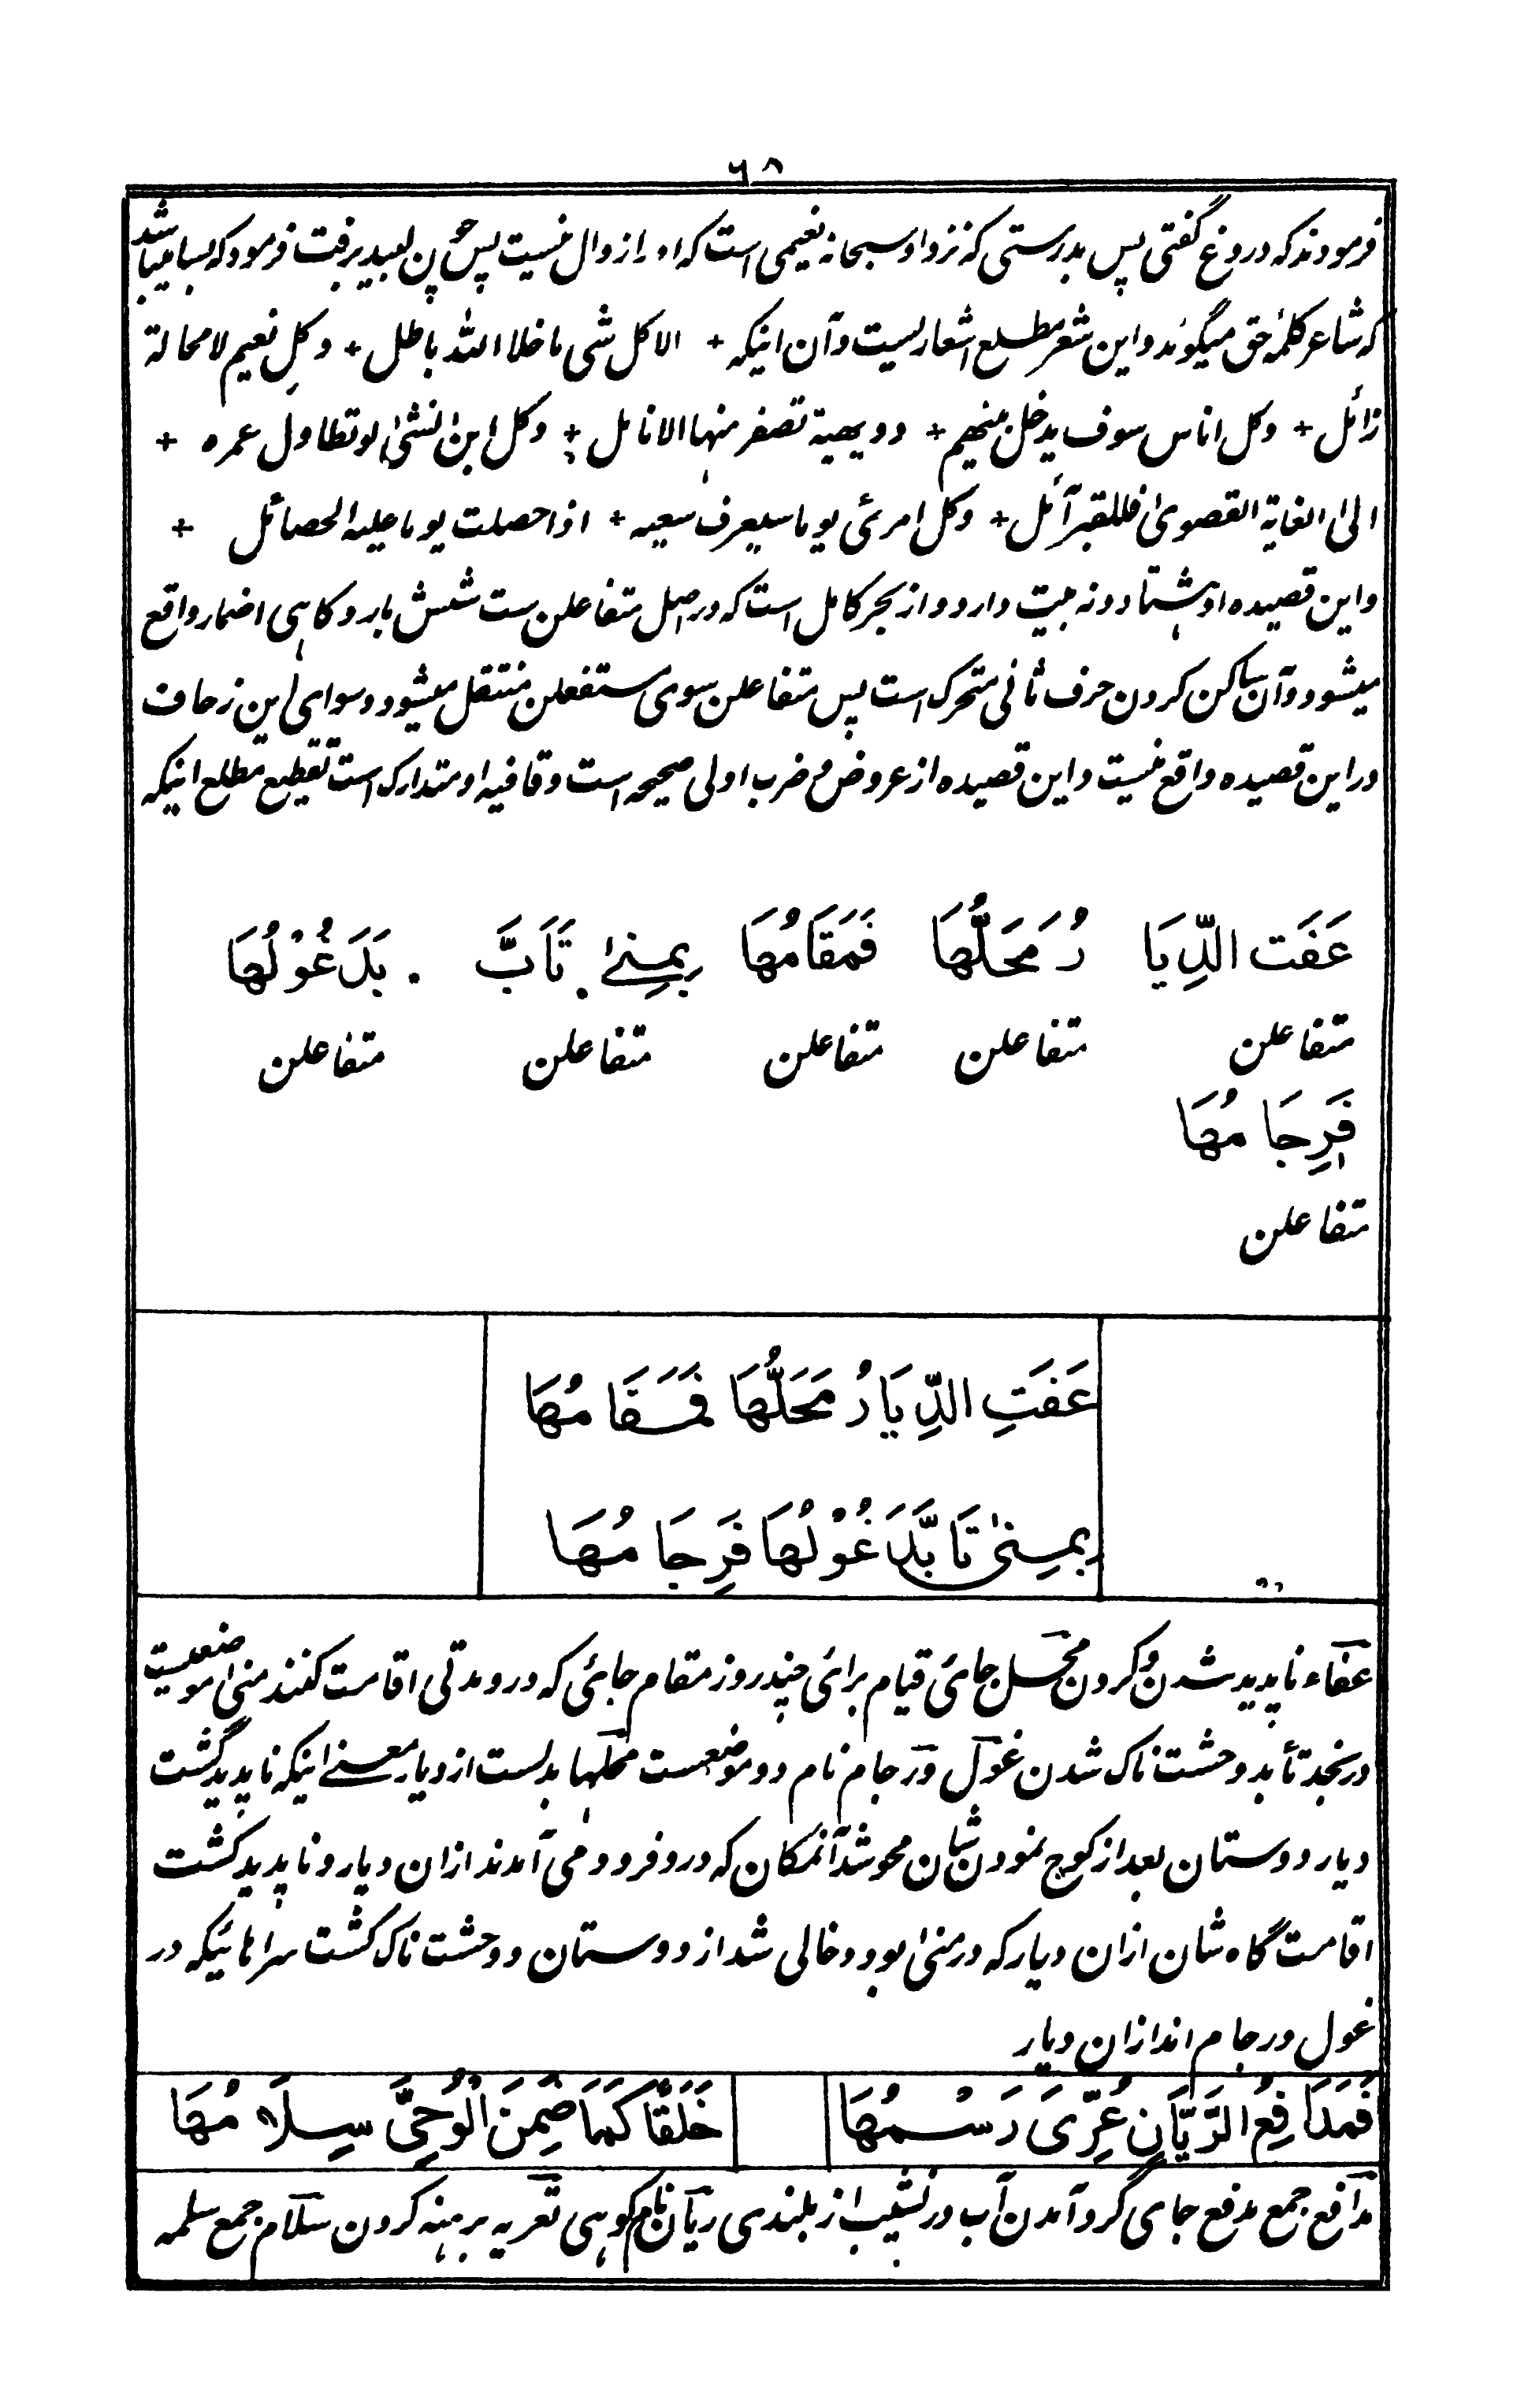 ۶۸
فرمودند که دروغ گفتی پس بدرستی که نزد او سبحانه نعیمی است که او را زوال نیست پس چون لبید برفت فرمود که بسا میباشد
که شاعر کلمهٔ حق میگوید و این شعر مطلع اشعار لیست و آن اینکه + الا کل شی ما خلا اللہ باطل + و کل نعیم لا محالة
زائل + وکل اناس سوف یدخل بینهم + دویهیة تصفر منها الانامل + وکل ابن انثیٰ لو تطاول عمره +
الیٰ الغایة القصویٰ فللقبر آئل + وکل امرئ یوما سیعرف سعیه + اذا حصلت یوما علیه الحصائل +
و این قصیده او هشتاد و نه بیت دارد و از بحر کامل است که در اصل متفاعلن ست شش بار و گاهی اضمار واقع
میشود و آن ساکن کردن حرف ثانی متحرک است پس متفاعلن بسوی مستفعلن منتقل میشود و سوای این زحاف
در این قصیده واقع نیست و این قصیده از عروض و ضرب اولی صحیحه است و قافیه او متدارک است تقطیع مطلع اینکه
عَفَت الدِّيَا رُ مَحَلُّهَا فَمَقَامُهَا بِمِنیٰ تَاَبَّ بَدَ غُوْلُهَا
متفاعلن متفاعلن متفاعلن متفاعلن متفاعلن
فَرِجَامُهَا
متفاعلن
عَفَتِ الدِّيَارُ مَحَلُّهَا فَمَقَامُهَا
بِمِنیٰ تَاَبَّدَ غُوْلُهَا فَرِجَامُهَا
عفاء ناپدید شدن و کردن محل جای قیام برای چند روز مقام جائی که درو مدتی اقامت کنند منیٰ موضعیست
در نجد تأبد وحشت ناک شدن غول و رجام نام دو موضعست محلها بدلست از دیار معنے اینکه ناپدید گشت
دیار دوستان بعد از کوچ نمودن شان محو شد آنمکان که درو فرود می آمدند ازان دیار و ناپدید گشت
اقامت گاه شان ازان دیار که در منیٰ بود و خالی شد از دوستان و وحشت ناک گشت سراهائیکه در
غول و رجام اند ازان دیار
فَمَدَافِعُ الرَّيَّانِ عُرِّیَ رَسْمُهَا خَلَقًا كَمَا ضَمِنَ الْوُحِیَّ سِلَامُهَا
مدافع جمع مدفع جای گرد آمدن آب در نشیب از بلندی ریان نام کوهی تعریه برهنه کردن سلام جمع سلمه